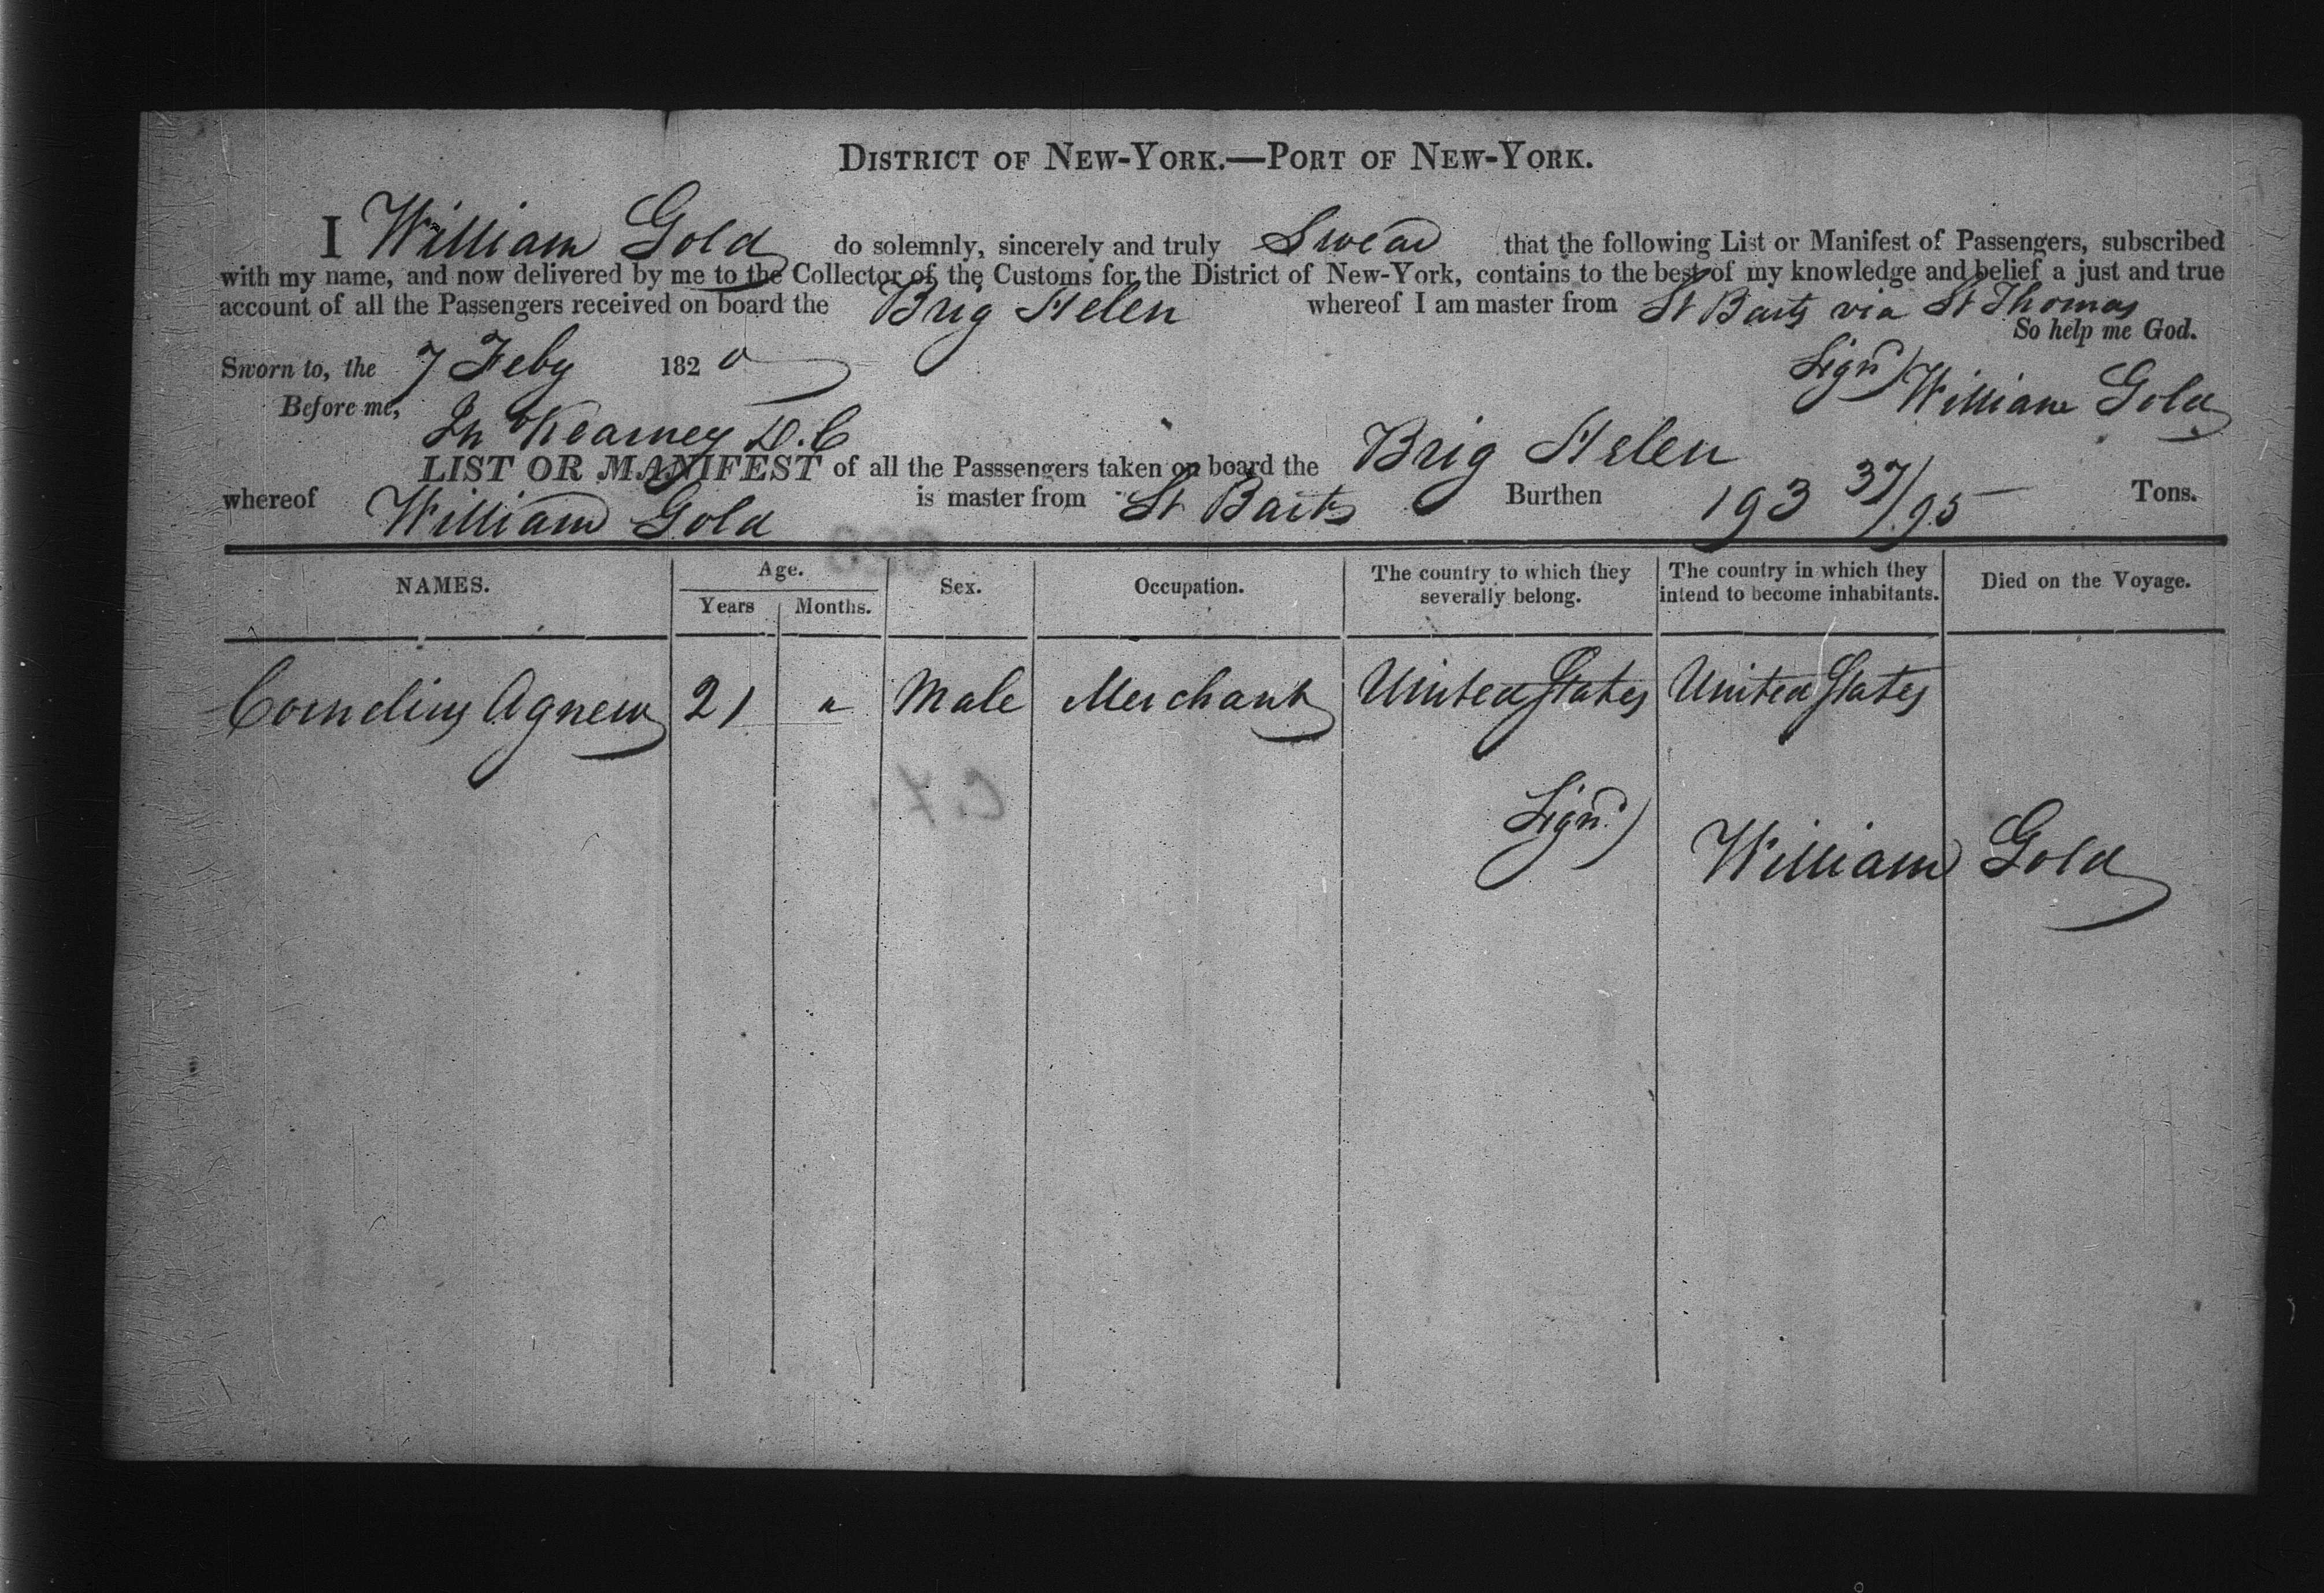 DISTRICT OF NEW-YORK.—PORT OF NEW-YORK.
I William Gold do solemnly, sincerely and truly Swear that the following List or Manifest of Passengers, subscribed
with my name, and now delivered by me to the Collector of the Customs for the District of New-York, contains to the best of my knowledge and belief a just and true
account of all the Passengers received on board the Brig Helen whereof I am master from St Barts via St Thomas
So help me God.
Sworn to, the 7 Feby 1820 Signd) William Gold
Before me, Jn Kearney D.C
LIST OR MANIFEST of all the Passsengers taken on board the Brig Helen
whereof William Gold is master from St Barts Burthen 193 37/95 Tons.
NAMES. Age. Years Months. Sex. Occupation. The country to which they severally belong. The country in which they intend to become inhabitants. Died on the Voyage.
Cornelius Agnew 21 " Male Merchant United States United States
Signd) William Gold